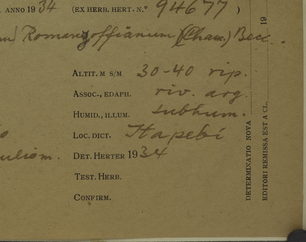 ANNO 1934 (EX HERB. HERT. N.º 94677)
Romanzoffianum (Cham.) Becc.
ALTIT. M S/M 30-40 rip.
ASSOC., EDAPH. riv. arg.
HUMID., ILLUM. subhum.
LOC. DICT. Itapebí
DET. HERTER 1934
TEST. HERB.
CONFIRM.
19
DETERMINATIO NOVA
EDITORI REMISSA EST A CL.